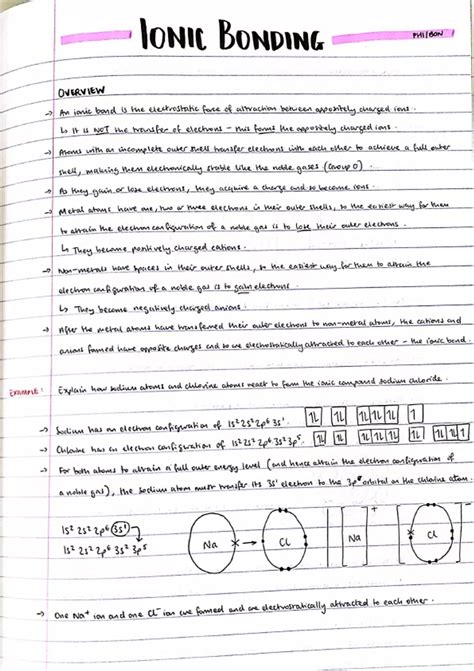 IONIC BONDING
PHI/BON
OVERVIEW
→ An ionic bond is the electrostatic force of attraction between oppositely charged ions.
↳ It is NOT the transfer of electrons - this forms the oppositely charged ions.
→ Atoms with an incomplete outer shell transfer electrons with each other to achieve a full outer
shell, making them electronically stable like the noble gases (Group 0).
→ As they gain or lose electrons, they acquire a charge and so become ions.
→ Metal atoms have one, two or three electrons in their outer shells, so the easiest way for them
to attain the electron configuration of a noble gas is to lose their outer electrons.
↳ They become positively charged cations.
→ Non-metals have spaces in their outer shells, so the easiest way for them to attain the
electron configuration of a noble gas is to gain electrons.
↳ They become negatively charged anions.
→ After the metal atoms have transferred their outer electrons to non-metal atoms, the cations and
anions formed have opposite charges and so are electrostatically attracted to each other - the ionic bond.
EXAMPLE: Explain how sodium atoms and chlorine atoms react to form the ionic compound sodium chloride.
→ Sodium has an electron configuration of 1s² 2s² 2p⁶ 3s¹. 
→ Chlorine has an electron configuration of 1s² 2s² 2p⁶ 3s² 3p⁵.
→ For both atoms to attain a full outer energy level (and hence attain the electron configuration of
a noble gas), the sodium atom must transfer its 3s¹ electron to the 3p⁵ orbital on the chlorine atom.
1s² 2s² 2p⁶ 3s¹
1s² 2s² 2p⁶ 3s² 3p⁵
Na → Cl [Na]⁺ [Cl]⁻
→ One Na⁺ ion and one Cl⁻ ion are formed and are electrostatically attracted to each other.